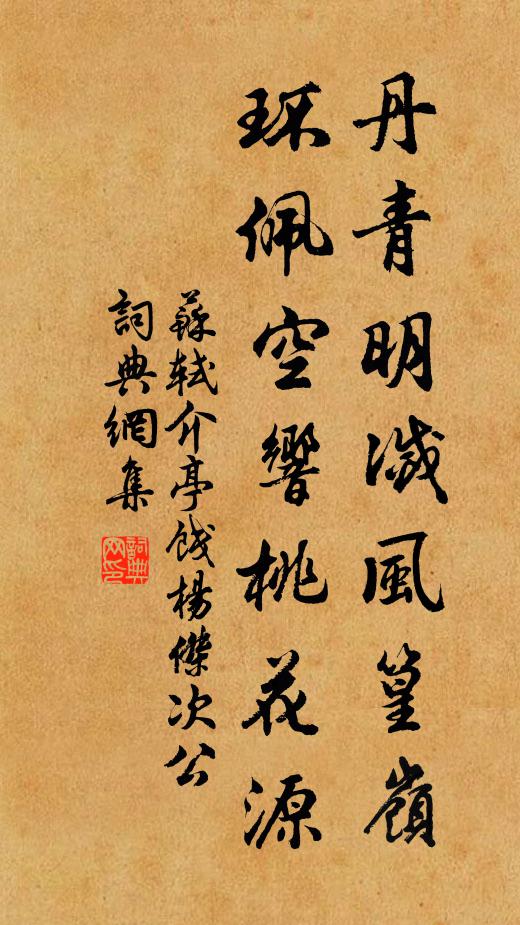 丹青明滅風篁嶺
环佩空響桃花源
蘇軾介亭餞楊傑次公
詞典網集
詞典
网印